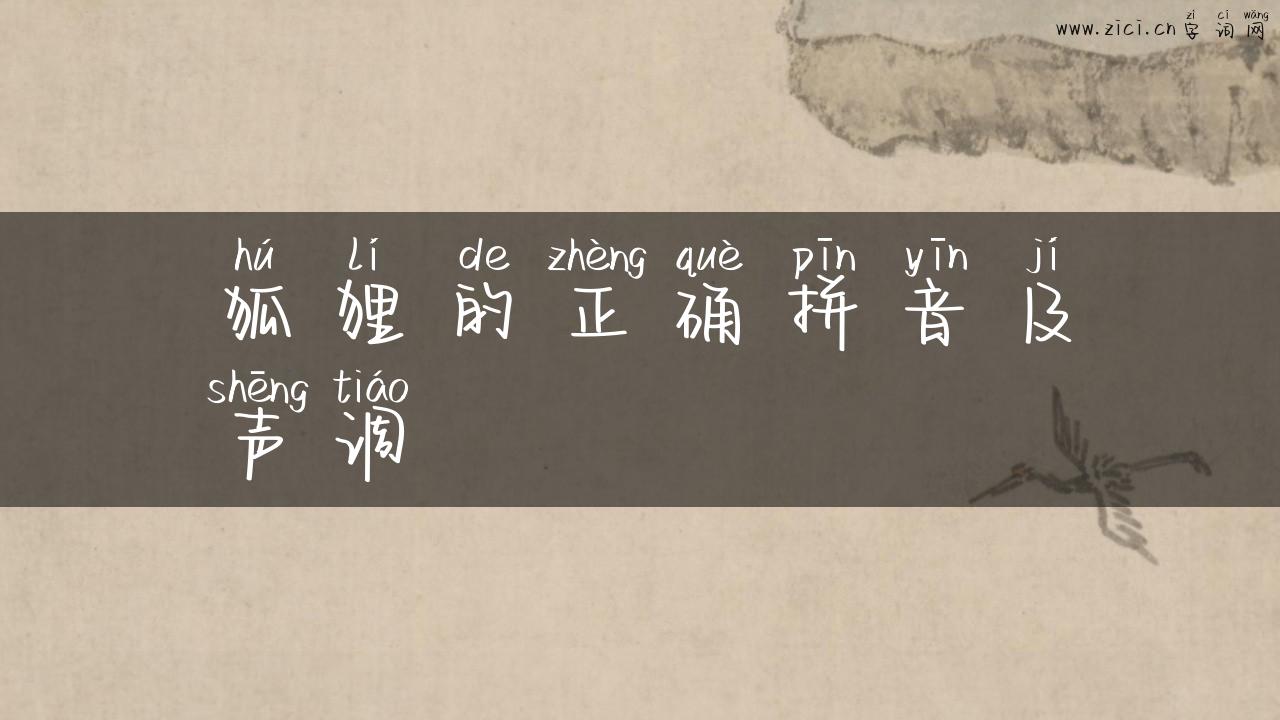 zì cí wǎng
www.zici.cn 字词网
hú lí de zhèng què pīn yīn jí
狐狸的正确拼音及
shēng tiáo
声调